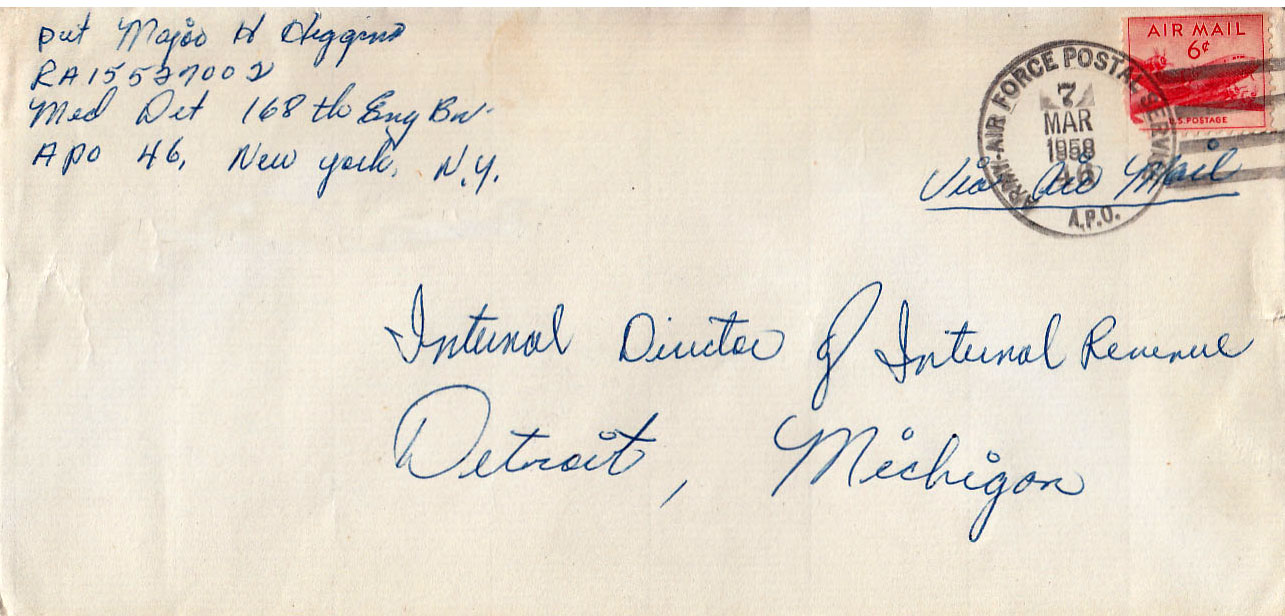 Pvt Major H Higgins
RA15527002
Med Det 168th Eng Bn
APO 46, New york, N.Y.
AIR MAIL
6¢
U.S. POSTAGE
ARMY-AIR FORCE POSTAL SERVICE
7
MAR
1958
A.P.O.
Via Air Mail
Internal Director of Internal Revenue
Detroit, Michigan